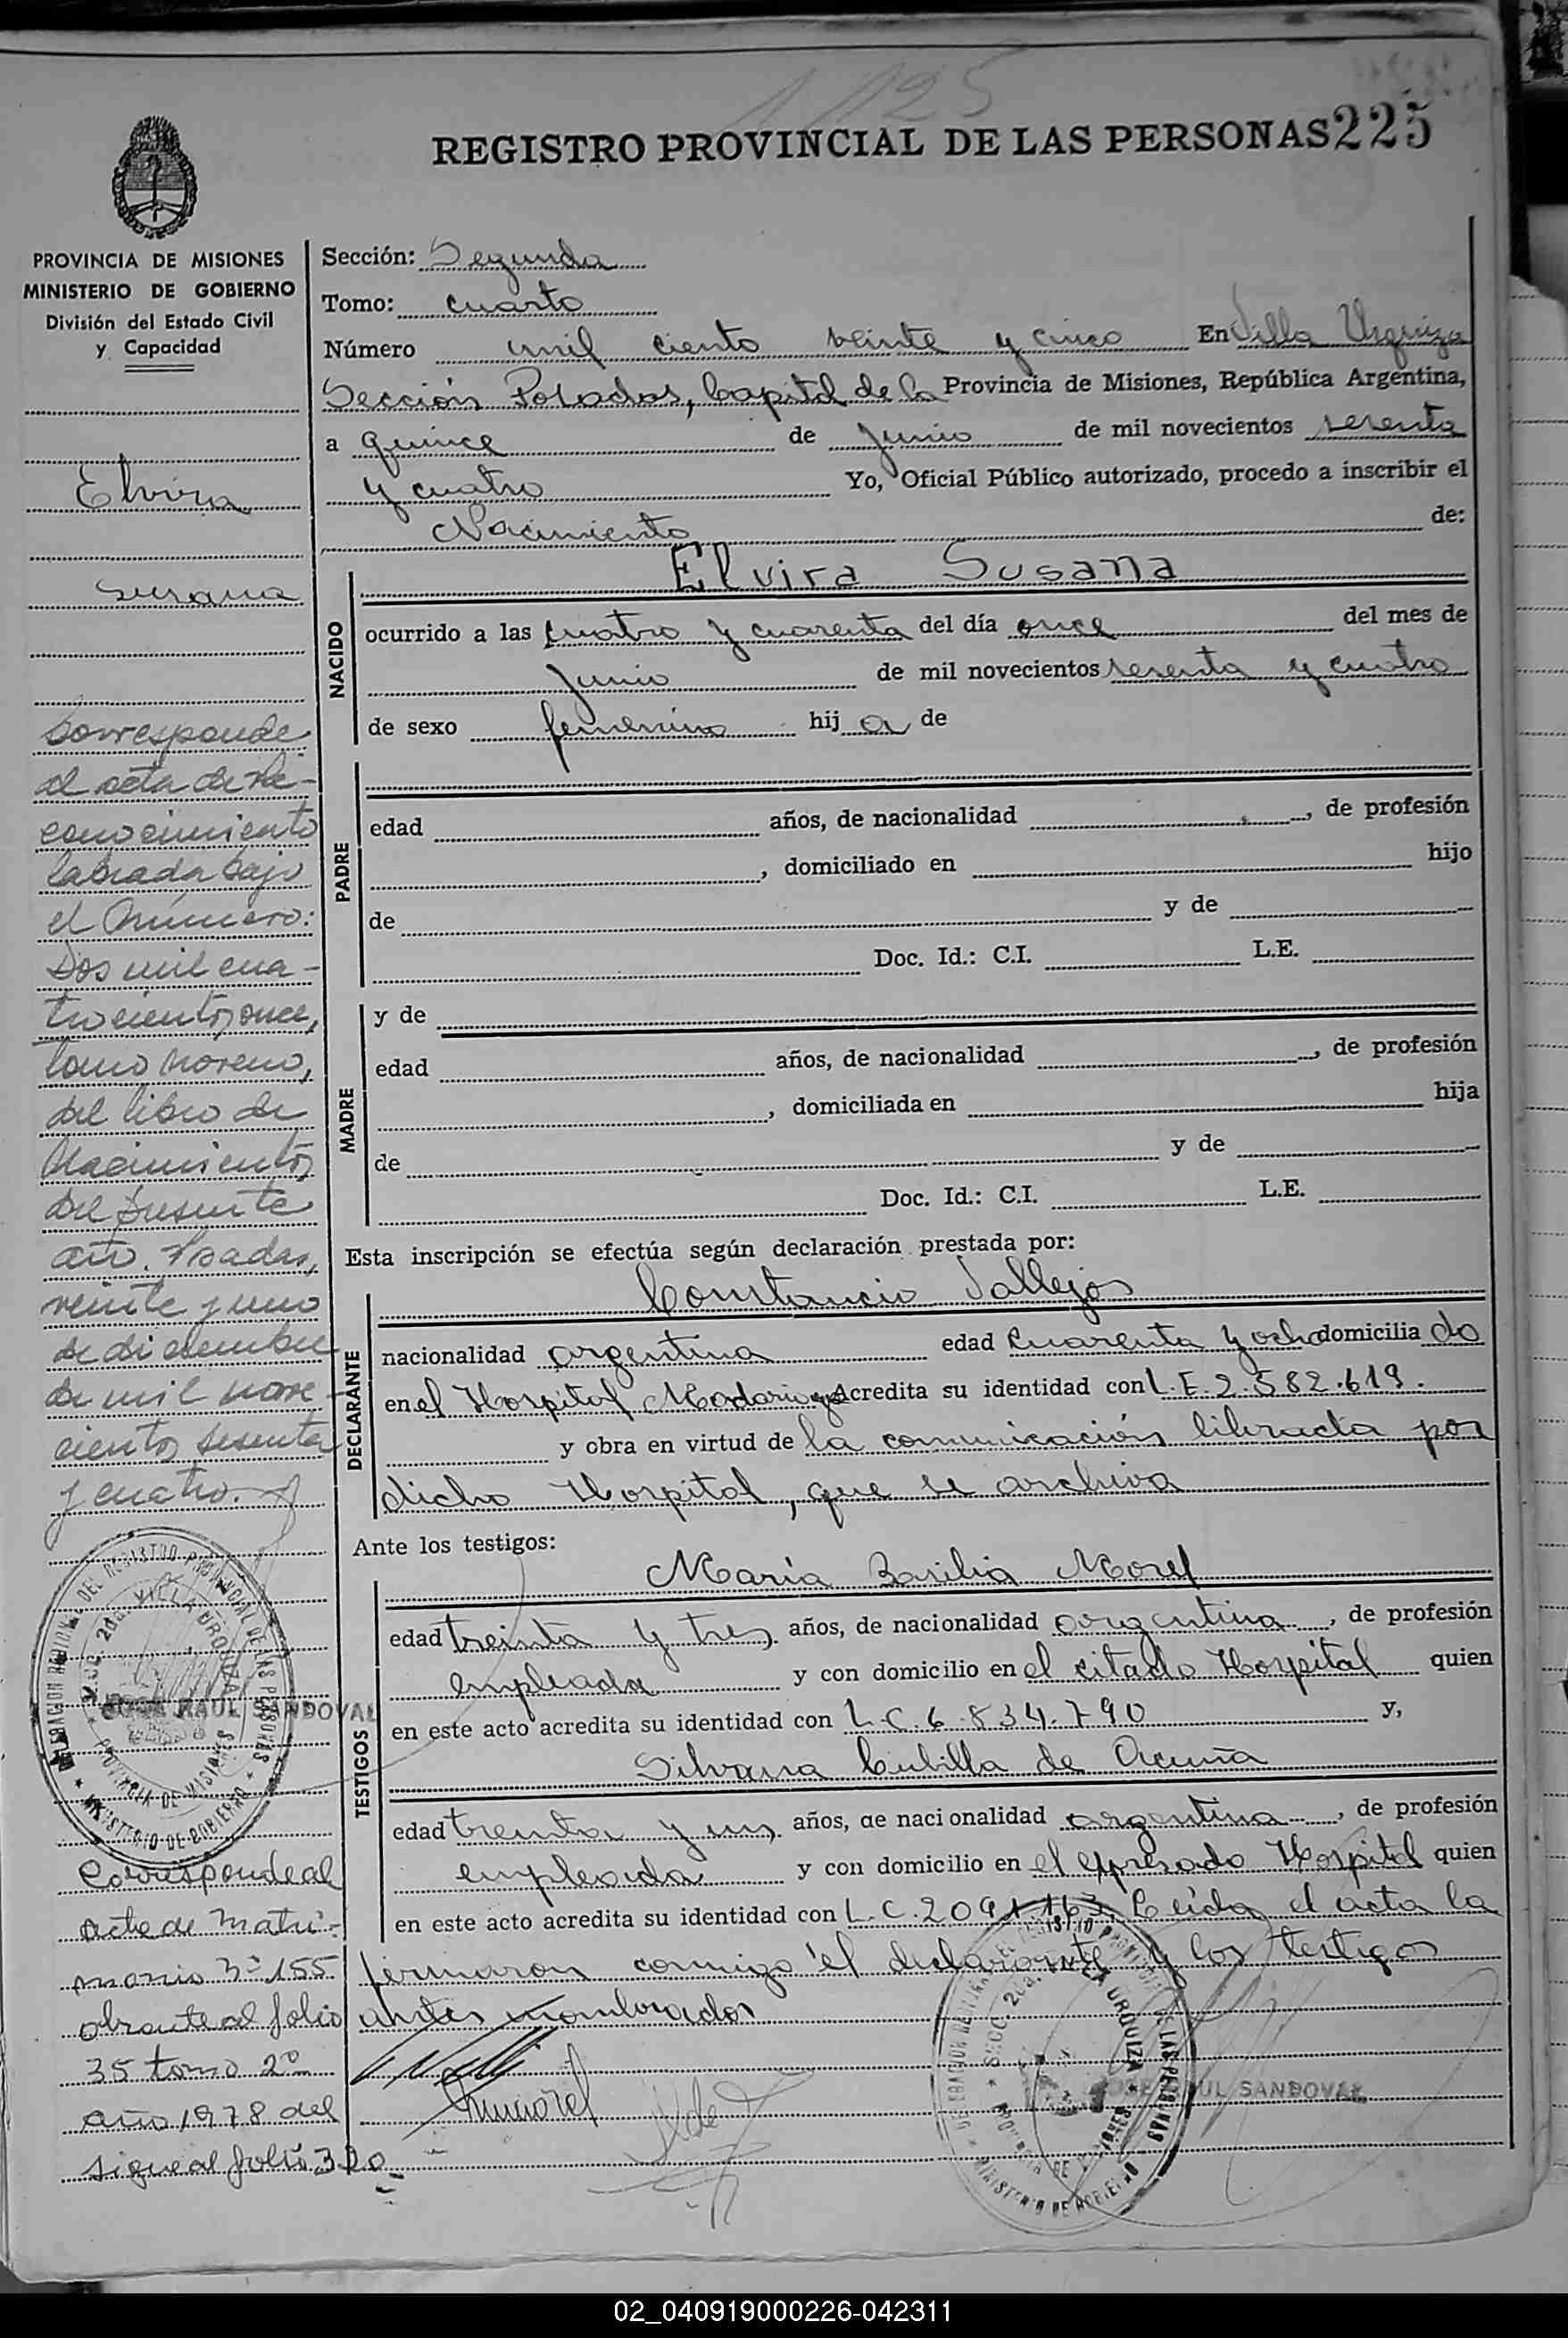 1125
REGISTRO PROVINCIAL DE LAS PERSONAS 225
PROVINCIA DE MISIONES
MINISTERIO DE GOBIERNO
División del Estado Civil
y Capacidad
Elvira
Susana
Corresponde
al acta de Re-
conocimiento
labrada bajo
el Número:
Dos mil cua-
trocientos once,
tomo noveno,
del libro de
Nacimientos
del presente
año. Posadas,
veinte y uno
de diciembre
de mil nove-
cientos sesenta
y cuatro.
DEL REGISTRO PROVINCIAL DE LAS PERSONAS
SECC. 2da. VILLA URQUIZA
PROVINCIA DE MISIONES
MINISTERIO DE GOBIERNO
JOSE RAUL SANDOVAL
Corresponde al
acta de matri-
monio Nº 155
obrante al folio
35 tomo 2º
año 1978 del
sigue al folio 320
Sección: Segunda
Tomo: cuarto
Número mil ciento veinte y cinco En Villa Urquiza
Sección Posadas, Capital de la Provincia de Misiones, República Argentina,
a quince de junio de mil novecientos sesenta
y cuatro Yo, Oficial Público autorizado, procedo a inscribir el
Nacimiento de:
NACIDO
Elvira Susana
ocurrido a las cuatro y cuarenta del día once del mes de
junio de mil novecientos sesenta y cuatro
de sexo femenino hij a de
PADRE
edad años, de nacionalidad , de profesión
, domiciliado en hijo
de y de
Doc. Id.: C.I. L.E.
MADRE
y de
edad años, de nacionalidad , de profesión
, domiciliada en hija
de y de
Doc. Id.: C.I. L.E.
Esta inscripción se efectúa según declaración prestada por:
DECLARANTE
Constancio Vallejos
nacionalidad argentina edad cuarenta y ocho domicilia do
en el Hospital Madariaga Acredita su identidad con L.E. 2.582.619.
y obra en virtud de la comunicación librada por
dicho Hospital, que se archiva
Ante los testigos:
TESTIGOS
María Basilia Morel
edad treinta y tres años, de nacionalidad argentina, de profesión
empleada y con domicilio en el citado Hospital quien
en este acto acredita su identidad con L.C. 6.834.790 y,
Silvana Cubilla de Acuña
edad treinta y un años, de nacionalidad argentina, de profesión
empleada y con domicilio en el expresado Hospital quien
en este acto acredita su identidad con L.C. 2091163. Leída el acta la
firmaron conmigo el declarante y los testigos
antes nombrados
SECC. 2da. VILLA URQUIZA
MINISTERIO DE GOBIERNO
JOSE RAUL SANDOVAL
02_040919000226-042311